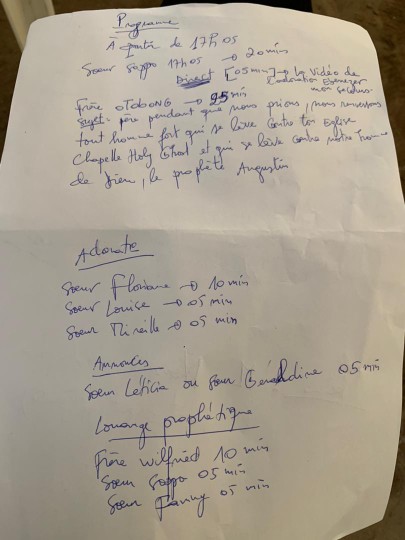 Programme
À partir de 17h05
Soeur Sappo 17h05 → 20min
Direct [05min] → la Vidéo de
l'adoration Ebenezer
mon secours.
Frère OTOBONG → 25min
Sujet - père pendant que nous prions, nous renversons
tout homme fort qui se lève contre ton Eglise
Chapelle Holy Ghost et qui se lève contre notre homme
de Dieu, le prophète Augustin
Adoration
Soeur Floriane → 10min
Soeur Louise → 05 min
Soeur Mireille → 05 min
Annonces
Soeur Léticia ou soeur Géraldine 05 min
Louange prophétique
Frère Wilfried 10 min
Soeur Sappo 05 min
Soeur Fanny 05 min